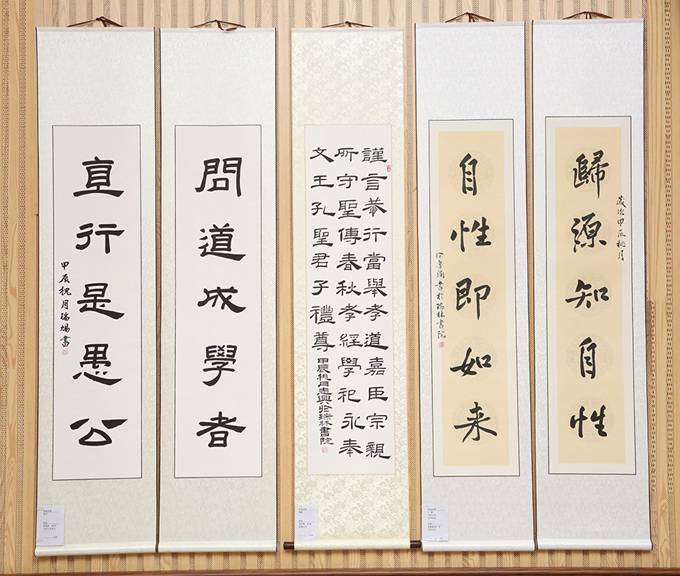 歸源知自性
歲次甲辰桃月
自性即如来
書於瑞林書院
謹言慎行當舉孝道嘉臣宗親
所守聖傳春秋孝經學祀永奉
文王孔聖君子禮尊
甲辰桃月志興於瑞林書院
問道成學者
直行是愚公
甲辰桃月瑞陽書